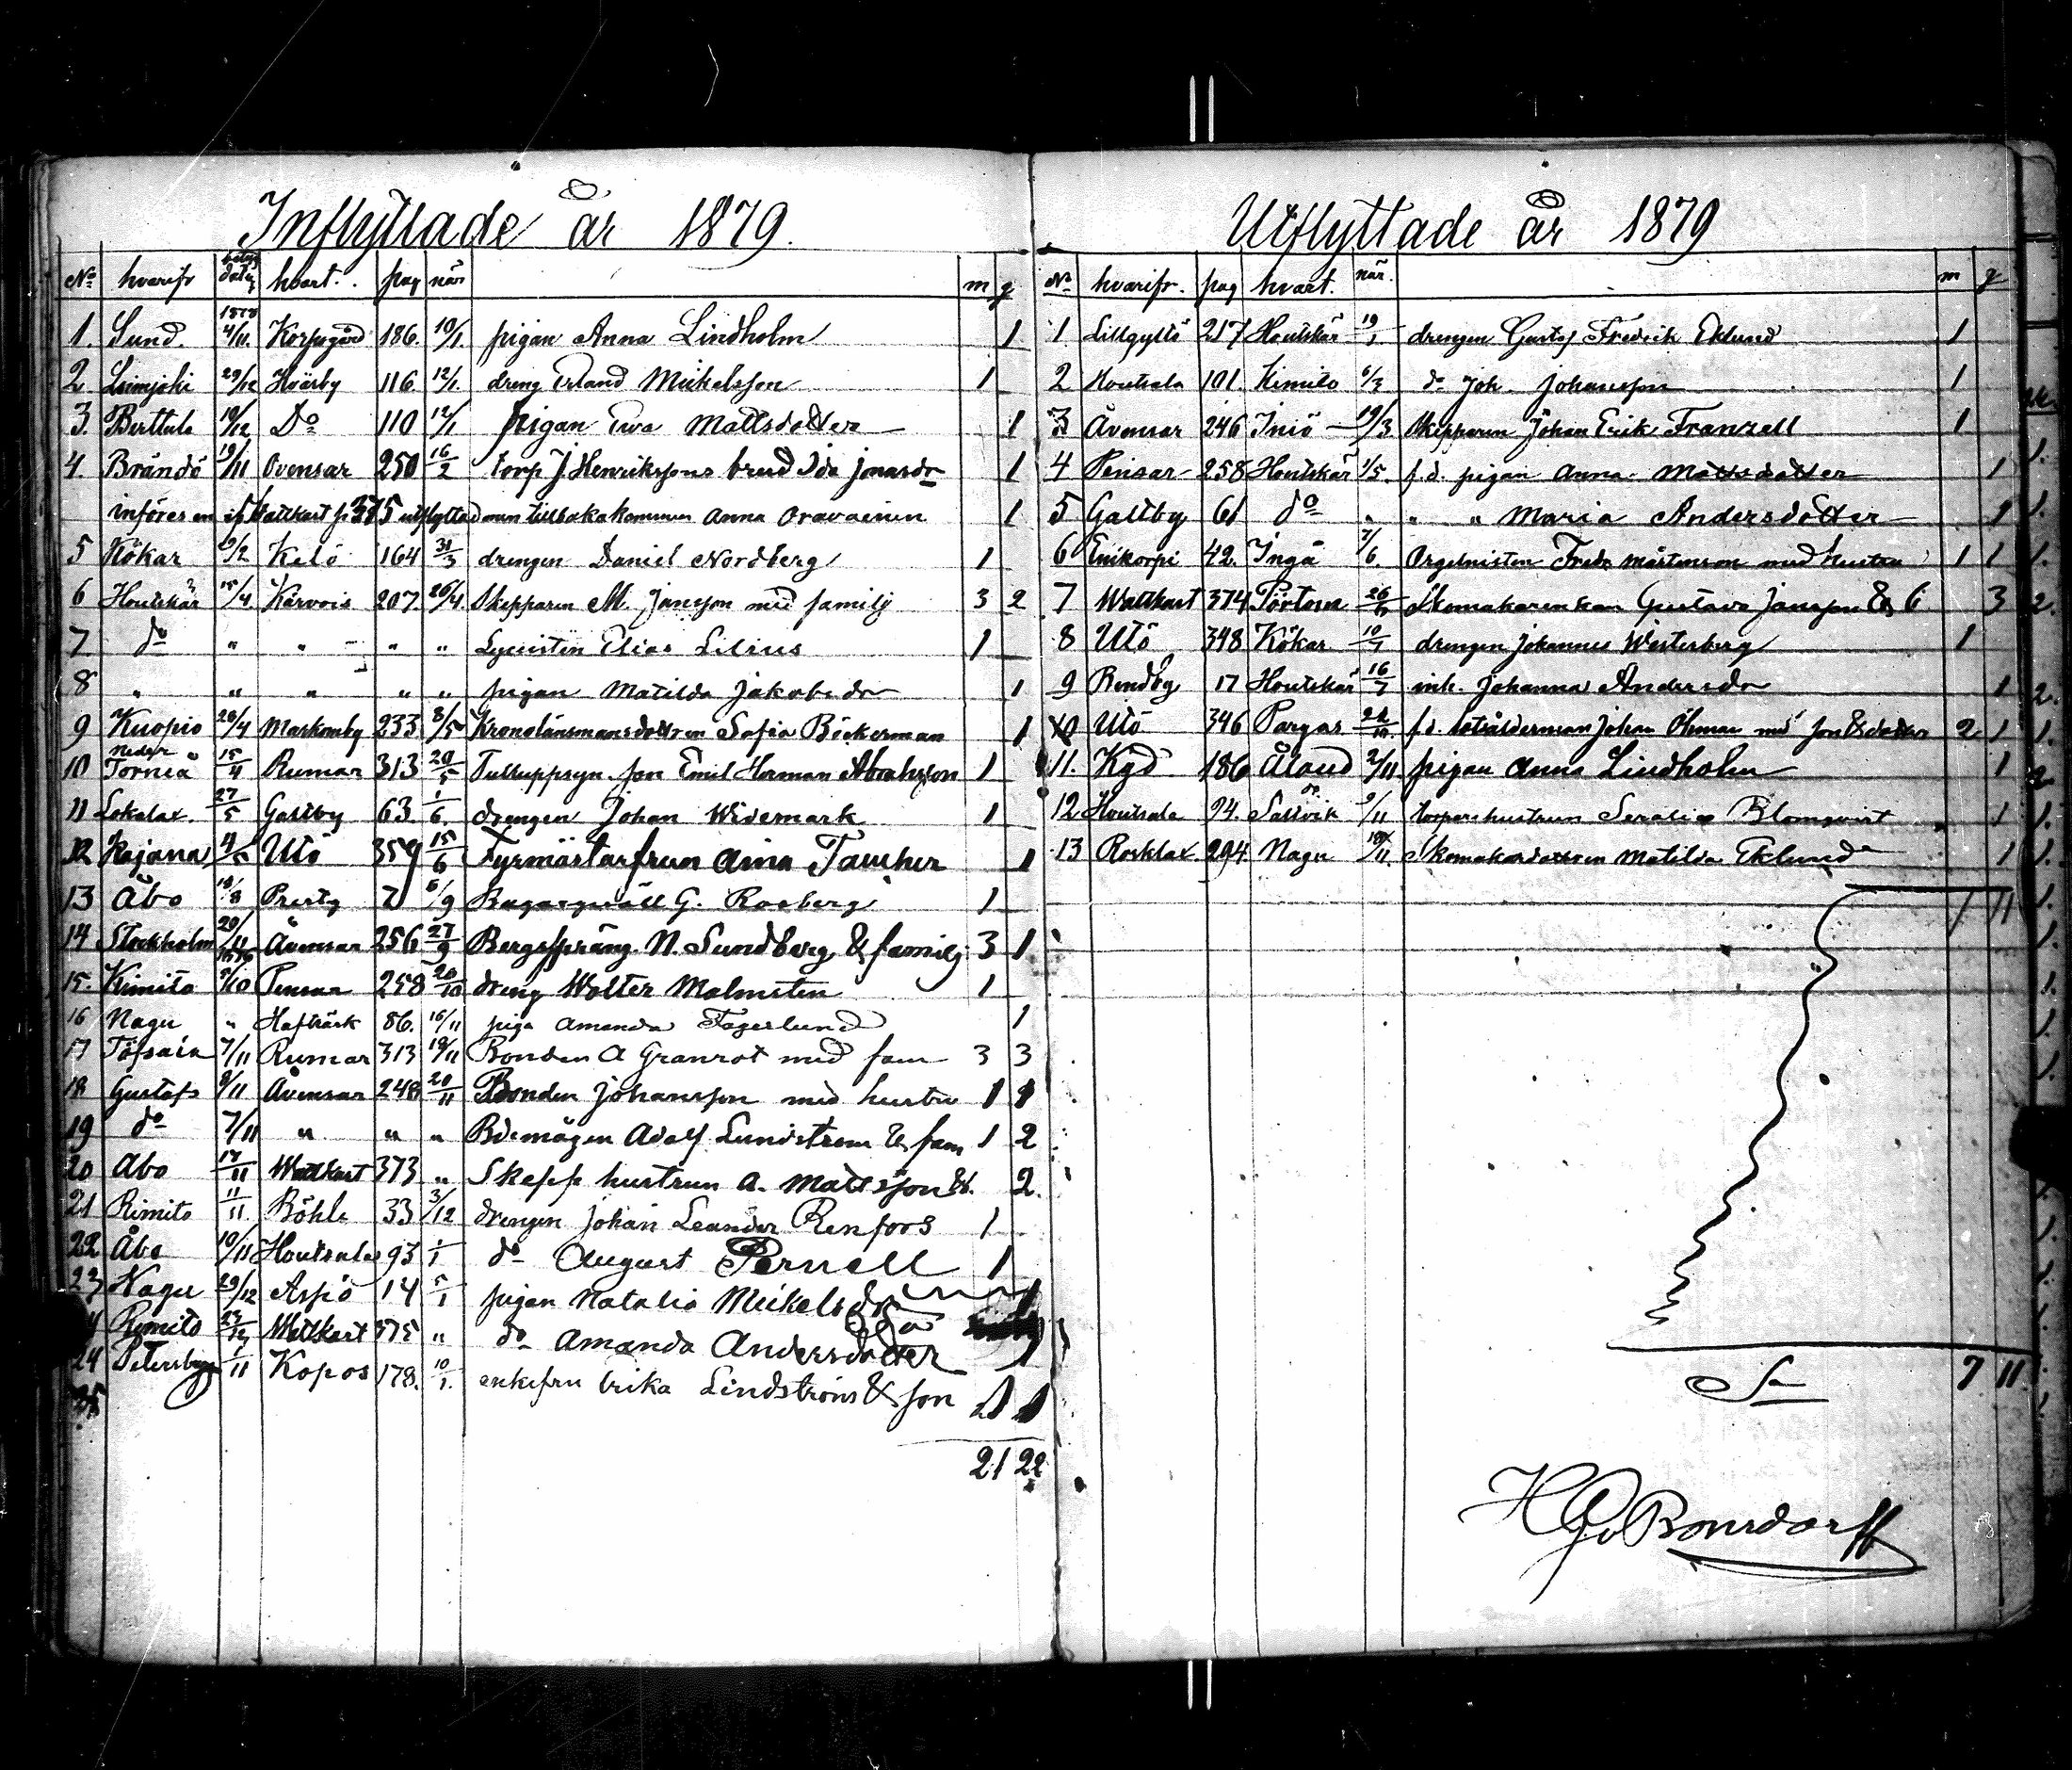 Inflyttade år 1879.
No hvarifr betyg datu hvart. pag när m q
1878
1. Sund. 4/11. Korpogård 186. 10/1. pigan Anna Lindholm 1
2 Loimjoki 29/12 Hvärby 116. 12/1. dreng Erland Mickelsson 1
3. Berttula 10/12 Do 110 12/1 pigan Eva Mattsdotter 1
4. Brändö 19/11 Ovensar 250 16/2 torp J. Henrikssons brud Ida Jonasdr 1
införes en i Wattkast p. 375 utflyttad men tillbakakommen Anna Oravainen 1
5 Kökar 19/2 Kelö 164 31/3 drengen Daniel Nordberg 1
6 Houtskär 15/4 Kärvois 207. 26/4 Skepparen M. Jansson med familj 3 2
7 do " " " " Lyceisten Elias Lilius 1
8 " " " " " pigan Matilda Jakobsdr 1
9 Kuopio 26/4 Markomby 233 8/5 Kronolänsmansdottren Sofia Böckerman 1
10 Neder Torneå 15/4 Rumar 313 20/5 Tulluppsyn. son Emil Herman Abrahsson 1
11 Lokalax 27/5 Galtby 63 1/6. drengen Johan Widemark 1
12 Kajana Utö 359 15/6 Fyrmästarfrun Aina Taucher 1
13 Åbo 18/8 Prestg 7 6/9 Bagargesäll G. Rosberg 1
14 Stockholm 20/11 1878 Åvensar 256 27/9 Bergsspräng. N. Sundberg & familj 3 1
15. Kimito 5/10 Pensar 258 20/10 dreng Wolter Malmsten 1
16 Nagu " Hafträsk 86. 16/11 piga Amanda Fagerlund 1
17 Töfsala 7/11 Rumar 313 19/11 Bonden A Granrot med fam 3 3
18 Gustafs 9/11 Åvensar 248 20/11 Bonden Johansson med hustru 1 1
19 do 7/11 " " " Bdemågen Adolf Lundström & fam 1 2
20 Åbo 17/11 Wattkast 373 " Skepp hustrun A. Mattsson & 2.
21 Rimito 11/11 Böhle 33 3/12 drengen Johan Leander Renfors 1
22 Åbo 10/11 Houtsala 93 1/1 do August Pernell 1
23 Nagu 29/12 Aspö 14 5/1 pigan Natalia Mickelsdr 1
Rimito Wattkast 375 " do Amanda Andersdotter 1
24 Petersburg 1/11 Kopos 178. 10/1. enkefru Erika Lindström & son 1 1
25
21 22
Utflyttade år 1879
No hvarifr. pag hvart. när. m q
1 Lillgyltö 217 Houtskär 19/1 drengen Gustaf Fredrik Eklund 1
2 Houtsala 101. Kimito 6/3 do Joh. Johansson 1
3 Åvensar 246 Iniö 19/3 Skepparen Johan Erik Franzell 1
4 Pensar 258 Houtskär 1/5. f.d. pigan Anna Mattsdotter 1
5 Galtby 61 do " " " Maria Andersdotter 1
6 Enikorpi 42. Ingå 7/6. Orgelnisten Fredr Mårtenson med hustru 1 1
7 Wattkast 374 Pörtom Skomakarenkan Gustava Jansson & 6 3
8 Utö 348 Kökar 10/7 drengen Johannes Westerberg 1
9 Rendby 17 Houtskär 16/7 inh. Johanna Andersdr 1
10 Utö 346 Pargas f.d. lotsålderman Johan Öhman med son & dotter 2 1
11. Kyd 186 Åland 2/11 pigan Anna Lindholm 1
12 Houtsala 94. Sastvik 9/11 torparehustrun Serafia Blomqvist 1
13 Rosklax 294. Nagu 18/11. Skomakardottren Matilda Eklund 1
7 11
Sa 7 11.
H G v Bonsdorff